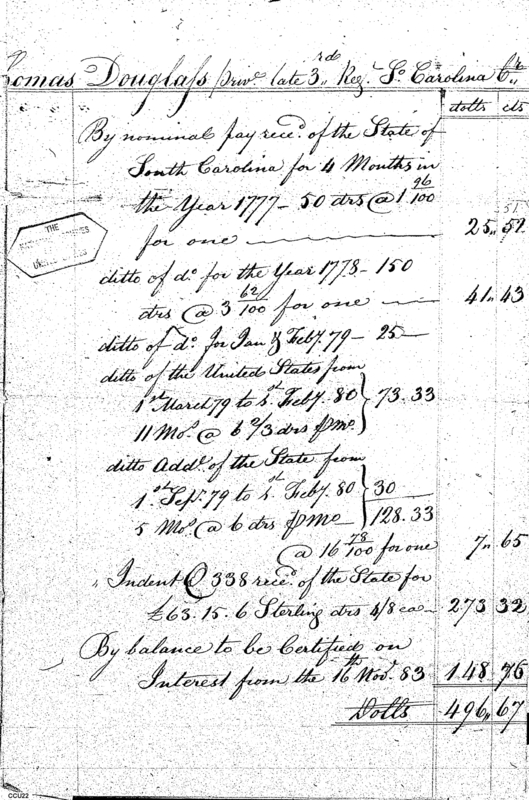 homas Douglass priv.ᵉ late 3.rd Reg.ᵗ S.º Carolina Cr.
dolls cts
By nominal pay rece.ᵈ of the State of
South Carolina for 4 Months in
the Year 1777 - 50 drs @ 1 96/100
for one 25,, 51
51
THE
ditto of d.º for the Year 1778 - 150
drs @ 3 62/100 for one 41,, 43
ditto of d.º for Jan & Feb.y 79 - 25
ditto of the United States from
1.st March 79 to 1.st Feb.y 80 } 73.33
11 Mo.s @ 6 2/3 drs p Mo.
ditto Add.l of the State from
1.st Sep.r 79 to 1.st Feb.y 80 } 30
5 Mo.s @ 6 drs p Mo 128.33
@ 16 78/100 for one 7,, 65
Indent Q 338 rece.d of the State for
£63.15.6 Sterling drs 4/8 ea 273 32
By balance to be Certified on
Interest from the 16th Nov.r 83 148 76
Dolls 496,, 67
CCU22